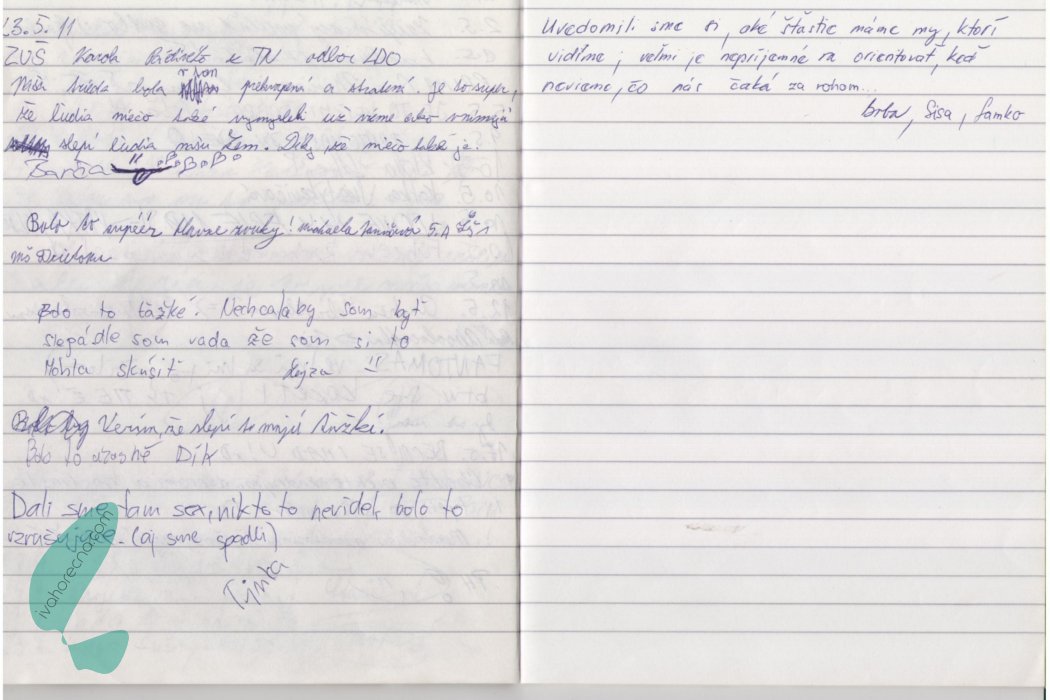 23.5.11
ZUŠ Karola Pádivého TN odbor LDO
trieda bola prekvapená a stratená. Je to super,
že ľudia niečo také vymysleli už vieme ako vnímajú
slepí ľudia našu Zem. Díky, že niečo také je.
Barča
Bolo to supéér hlavne zvuky! Michaela 5.A ZŠ 1
Bolo to ťažké. Nechcela by som byť
slepá dle som rada že som si to
Mohla skúsiť Lejza
Verím, že slepí to majú ťažké.
Bolo to úžasné Dík
Dali sme tam sex, nikto to nevidel, bolo to
vzrušujúce. (aj sme spadli)
Tynka
Uvedomili sme si, aké šťastie máme my, ktorí
vidíme; veľmi je nepríjemné sa orientovať, keď
nevieme, čo nás čaká za rohom...
Siša, Samko
ivahorecna.com